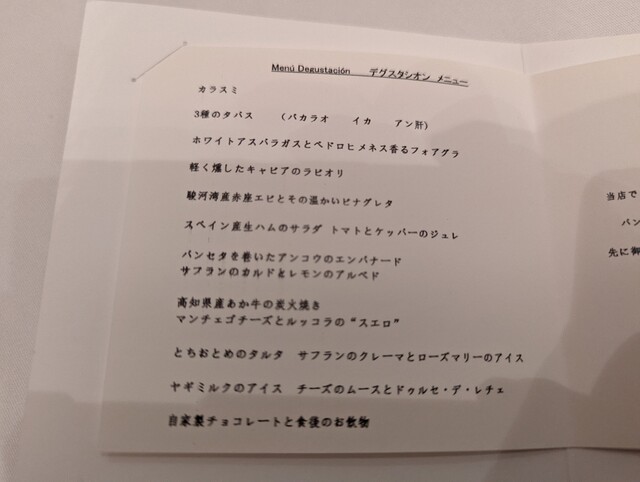 Menú Degustación デグスタシオン メニュー
カラスミ
3種のタパス (バカラオ イカ アン肝)
ホワイトアスパラガスとペドロヒメネス香るフォアグラ
軽く燻したキャビアのラビオリ
駿河湾産赤座エビとその温かいビナグレタ
スペイン産生ハムのサラダ トマトとケッパーのジュレ
パンセタを巻いたアンコウのエンパナード
サフランのカルドとレモンのアルベド
高知県産あか牛の炭火焼き
マンチェゴチーズとルッコラの“スエロ”
とちおとめのタルタ サフランのクレーマとローズマリーのアイス
ヤギミルクのアイス チーズのムースとドゥルセ・デ・レチェ
自家製チョコレートと食後のお飲物
当店で
パン
先に御